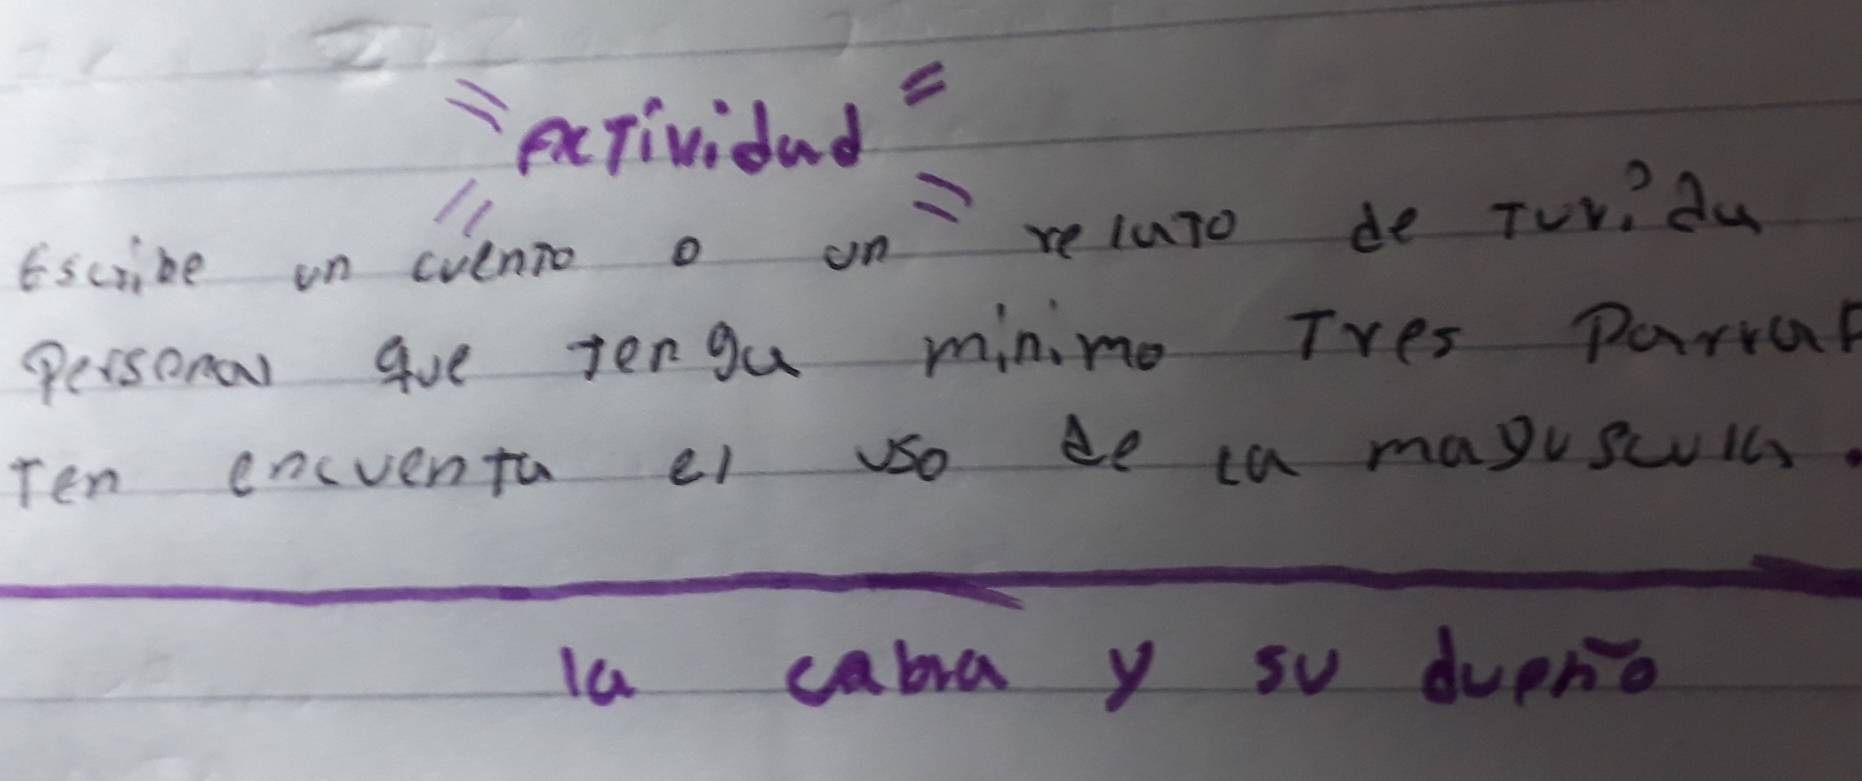 Actividad
Escribe un cuento o un relato de tu vida
personal que tenga minimo Tres Parraf
Ten encuenta el uso de la mayuscula.
la cabra y su dueño